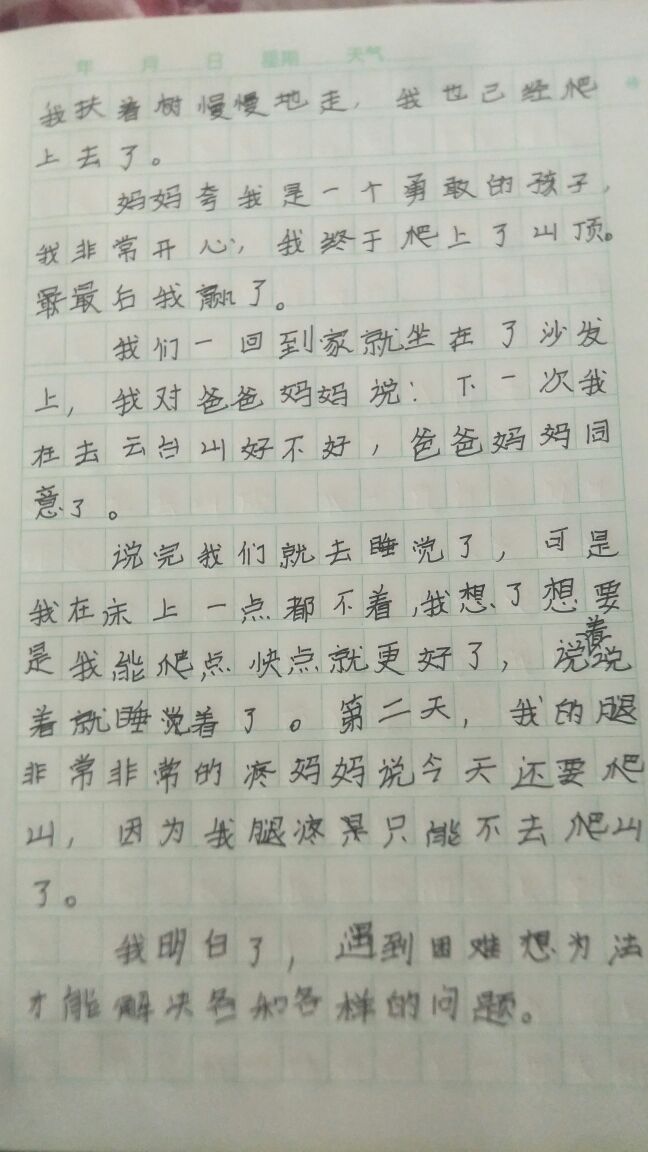 年 月 日 星期 天气
我扶着树慢慢地走，我也己经爬
上去了。
妈妈夸我是一个勇敢的孩子，
我非常开心，我终于爬上了山顶。
最后我赢了。
我们一回到家就坐在了沙发
上，我对爸爸妈妈说：下一次我
在去云台山好不好，爸爸妈妈同
意了。
说完我们就去睡觉了，可是
我在床上一点都不着，我想了想要
是我能爬点快点就更好了，说着说
着就睡觉着了。第二天，我的腿
非常非常的疼妈妈说今天还要爬
山，因为我腿疼是只能不去爬山
了。
我明白了，遇到困难想为法
才能解决各和各样的问题。